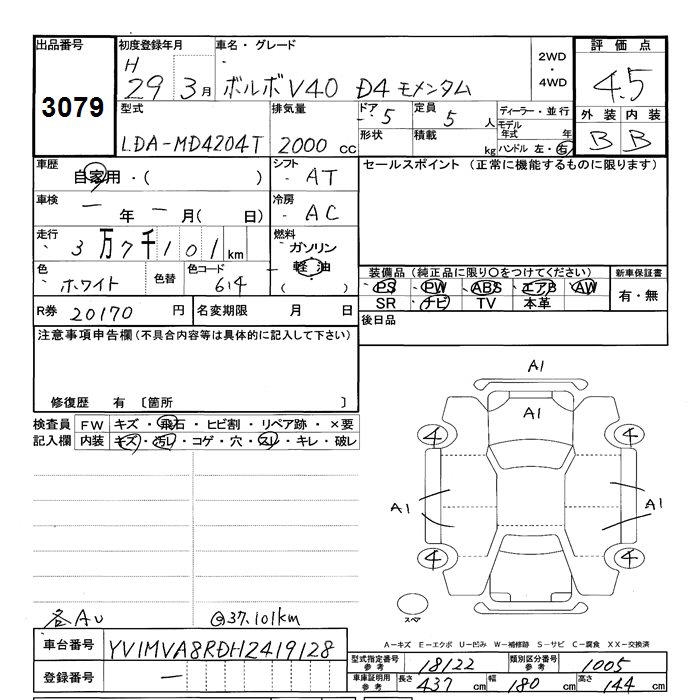 出品番号 初度登録年月 車名・グレード 2WD・4WD 評価点
3079 H 29 3月 ボルボV40 D4 モメンタム 4.5
型式 排気量 ドア 定員 ディーラー・並行 外装 内装
LDA-MD4204T 2000 cc 5 5人 モデル年式 年 B B
形状 積載 kg ハンドル 左・右
車歴 自家用・( ) シフト AT セールスポイント (正常に機能するものに限ります)
車検 ー年 ー月( 日) 冷房 AC
走行 3万7千101km 燃料 ガソリン
軽油
( )
色 ホワイト 色替 色コード 614
装備品 (純正品に限り○をつけてください) 新車保証書
PS PW ABS エアB AW 有・無
SR ナビ TV 本革
R券 20170 円 名変期限 月 日 後日品
注意事項申告欄 (不具合内容等は具体的に記入して下さい)
修復歴 有 〔箇所 〕
検査員 FW キズ・飛石・ヒビ割・リペア跡・×要
記入欄 内装 キズ・汚レ・コゲ・穴・スレ・キレ・破レ
A1
A1
4 4
A1 A1
4 4
スペア
各AU @37.101km
A-キズ E-エクボ U-凹み W-補修跡 S-サビ C-腐食 XX-交換済
車台番号 YV1MVA8RDH2419128
型式指定番号 参考 18122 類別区分番号 参考 1005
登録番号 ー
車庫証明用 参考 長さ 437 cm 幅 180 cm 高さ 144 cm